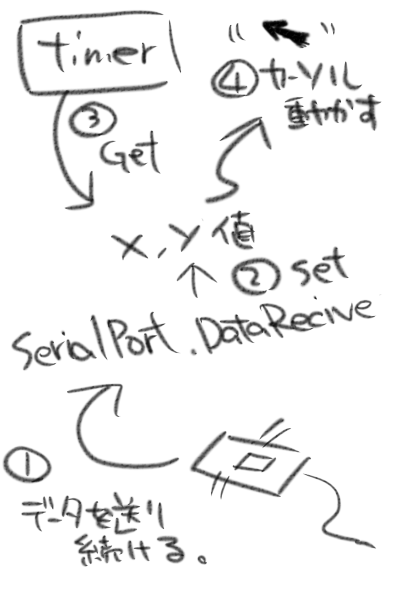 timer
④カーソル
動かす
③
Get
X,Y値
②set
SerialPort.DataRecive
①
データを送り
続ける。